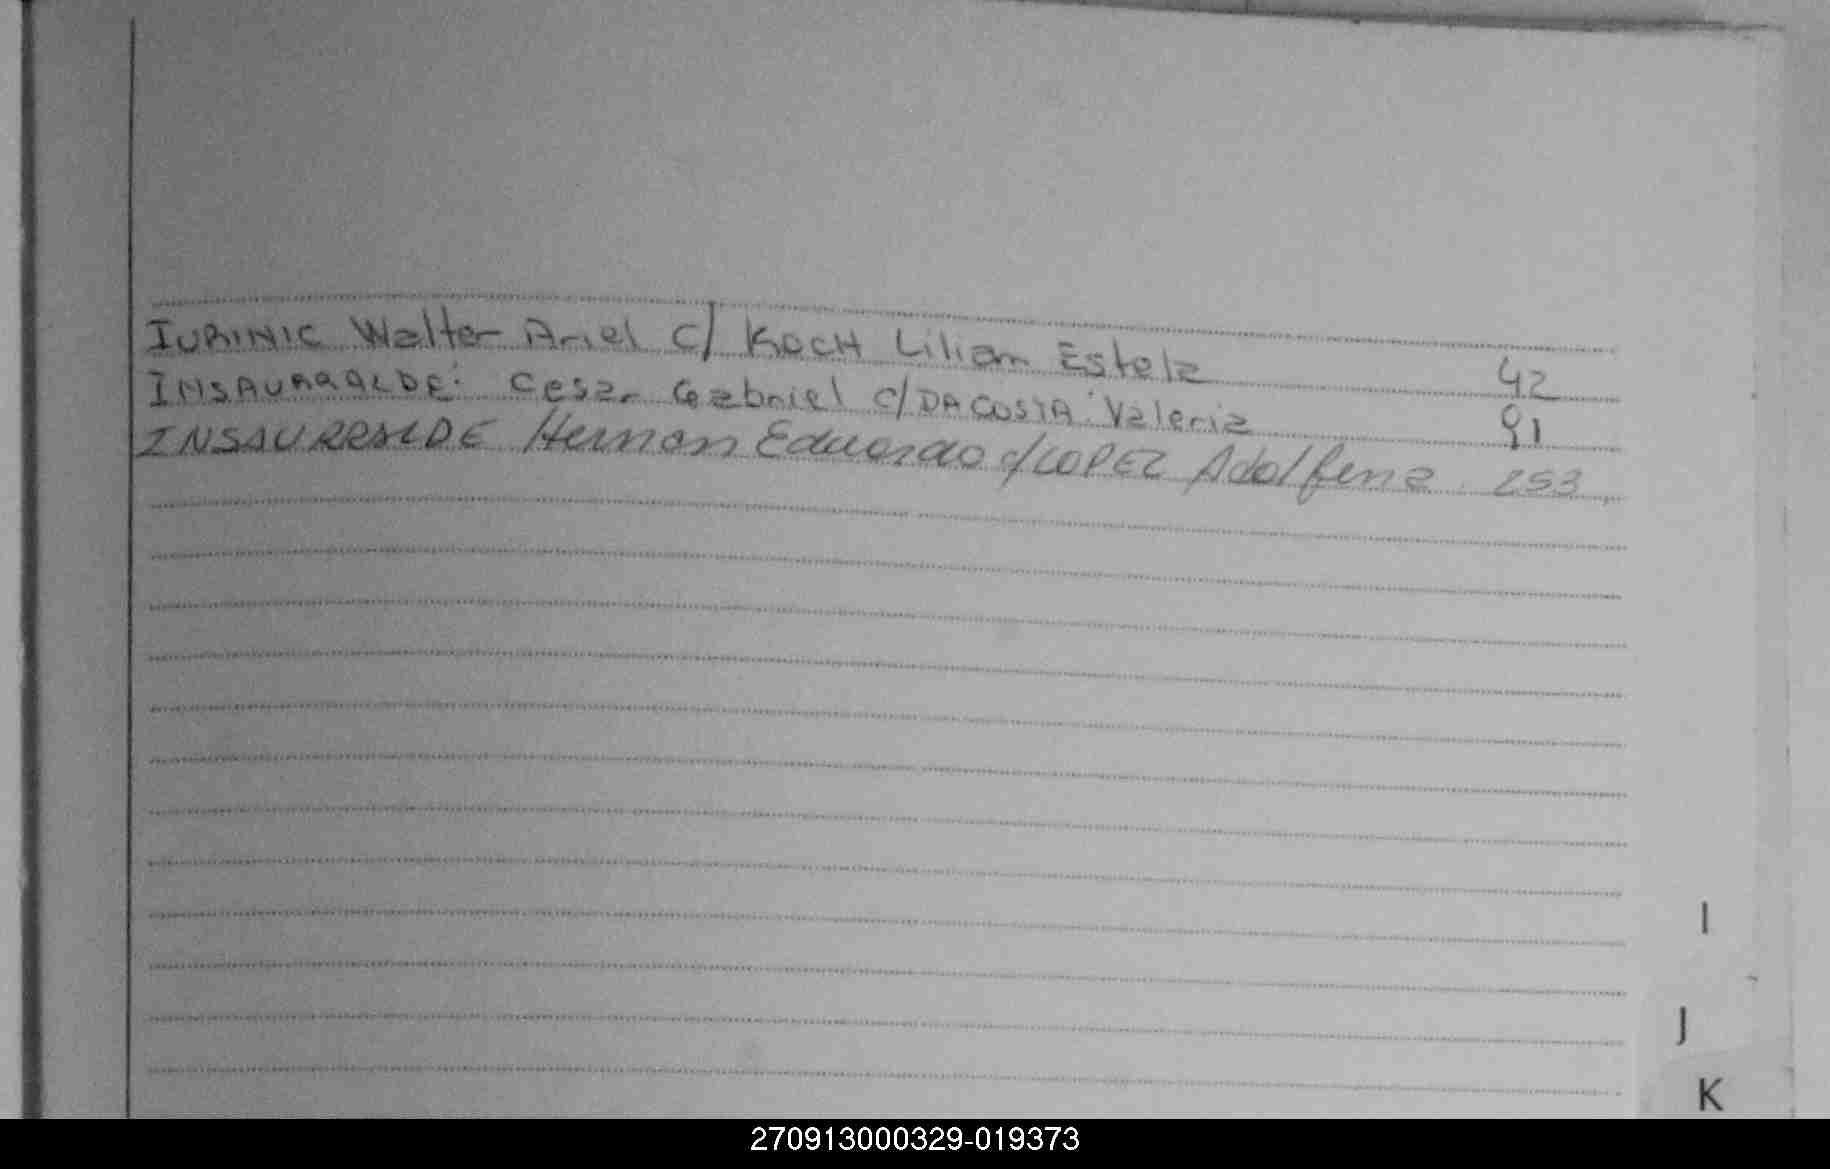 IURINIC Walter Ariel c/ KOCH Lilian Estela 42
INSAURRALDE: Cesar Gabriel c/ DACOSTA: Valeria 91
INSAURRALDE Hernan Eduardo c/ LOPEZ Adolfina 253
I
J
K
270913000329-019373